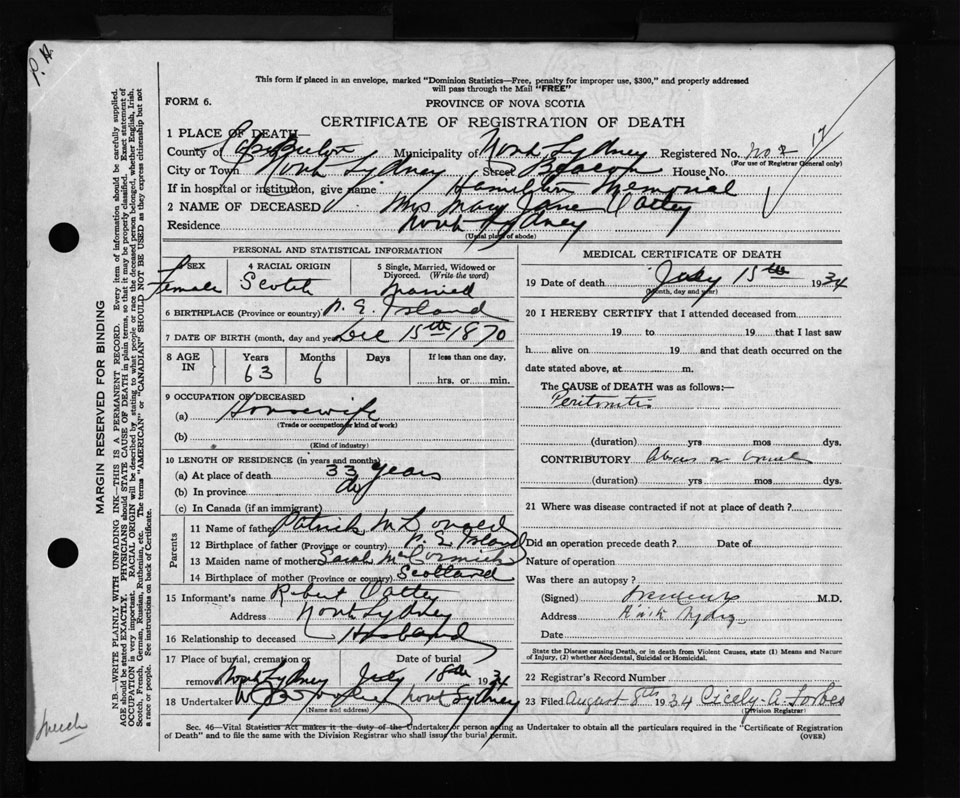 P. H.
This form if placed in an envelope, marked "Dominion Statistics—Free, penalty for improper use, $300," and properly addressed
will pass through the Mail "FREE"
FORM 6.
PROVINCE OF NOVA SCOTIA
CERTIFICATE OF REGISTRATION OF DEATH
17
1 PLACE OF DEATH—
County of Cape Breton Municipality of North Sydney Registered No. No 2
(For use of Registrar General only)
City or Town North Sydney Street Beacon House No.
If in hospital or institution, give name Hamilton Memorial
2 NAME OF DECEASED Mrs Mary Jane
Residence North Sydney
(Usual place of abode)
PERSONAL AND STATISTICAL INFORMATION
SEX 4 RACIAL ORIGIN 5 Single, Married, Widowed or Divorced. (Write the word)
Female Scotch Married
6 BIRTHPLACE (Province or country) P. E. Island
7 DATE OF BIRTH (month, day and year) Dec 15th 1870
8 AGE IN Years Months Days If less than one day,
63 6 hrs. or min.
9 OCCUPATION OF DECEASED
(a) Housewife
(Trade or occupation or kind of work)
(b)
(Kind of industry)
10 LENGTH OF RESIDENCE (in years and months)
(a) At place of death 33 years
(b) In province do
(c) In Canada (if an immigrant)
Parents
11 Name of father Patrick McDonald
12 Birthplace of father (Province or country) P. E. Island
13 Maiden name of mother Sarah McCormick
14 Birthplace of mother (Province or country) Scotland
15 Informant's name Robert
Address North Sydney
16 Relationship to deceased Husband
17 Place of burial, cremation or removal Date of burial
North Sydney July 18th 1934
18 Undertaker North Sydney
(Name and address)
MEDICAL CERTIFICATE OF DEATH
19 Date of death July 15th 1934
(Month, day and year)
20 I HEREBY CERTIFY that I attended deceased from
19 to 19 that I last saw
h alive on 19 and that death occurred on the
date stated above, at m.
The CAUSE of DEATH was as follows:—
Peritonitis
(duration) yrs mos dys.
CONTRIBUTORY
(duration) yrs mos dys.
21 Where was disease contracted if not at place of death?
Did an operation precede death? Date of
Nature of operation
Was there an autopsy?
(Signed) M.D.
Address
Date
State the Disease causing Death, or in death from Violent Causes, state (1) Means and Nature
of Injury, (2) whether Accidental, Suicidal or Homicidal.
22 Registrar's Record Number
23 Filed August 8th 1934 Cicely A. Forbes
(Division Registrar)
Sec. 46—Vital Statistics Act makes it the duty of the Undertaker or person acting as Undertaker to obtain all the particulars required in the "Certificate of Registration
of Death" and to file the same with the Division Registrar who shall issue the burial permit.
(OVER)
MARGIN RESERVED FOR BINDING
N.B.—WRITE PLAINLY WITH UNFADING INK—THIS IS A PERMANENT RECORD. Every item of information should be carefully supplied.
AGE should be stated EXACTLY. PHYSICIANS should STATE CAUSE OF DEATH in plain terms, so that it may be properly classified. Exact statement of
OCCUPATION is very important. RACIAL ORIGIN will be described by stating to what people or race the deceased person belonged, whether English, Irish,
Scotch, French, German, Russian, Ruthenian, etc. The terms "AMERICAN" or "CANADIAN" SHOULD NOT BE USED as they express citizenship but not
a race or people. See instructions on back of Certificate.